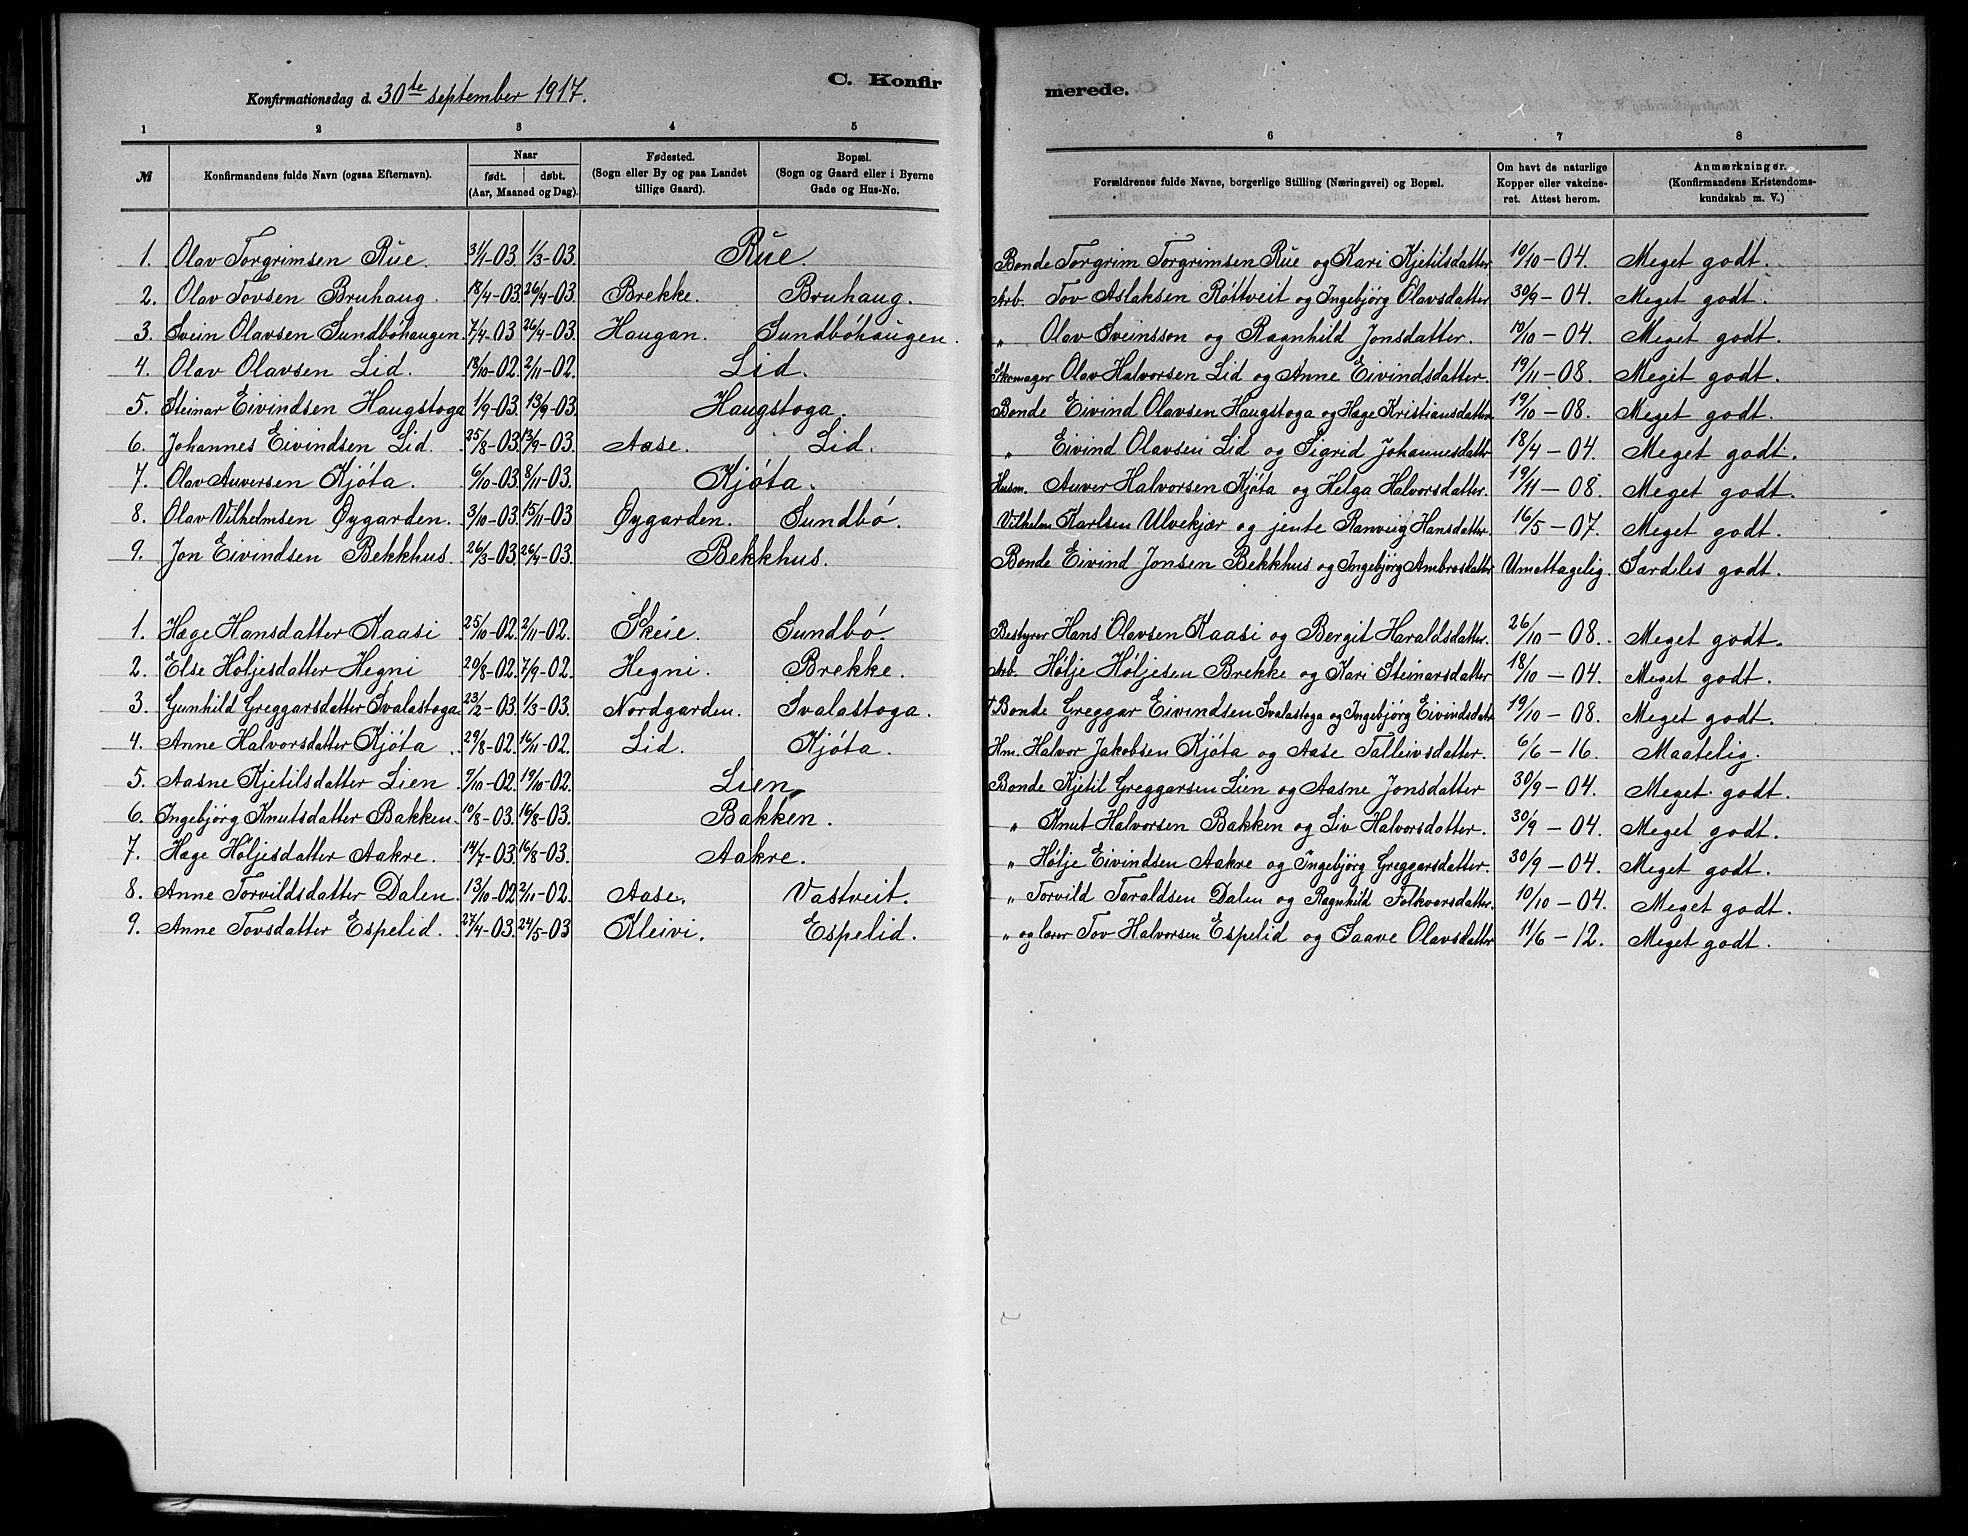 Konfirmationsdag d. 30te september 1917.
C. Konfirmerede.
1 2 3 4 5 6 7 8
№ Konfirmandens fulde Navn (ogsaa Efternavn). Naar født. døbt. (Aar, Maaned og Dag). Fødested. (Sogn eller By og paa Landet tillige Gaard). Bopæl. (Sogn og Gaard eller i Byerne Gade og Hus-No. Forældrenes fulde Navne, borgerlige Stilling (Næringsvei) og Bopæl. Om havt de naturlige Kopper eller vakcineret. Attest herom. Anmærkninger. (Konfirmandens Kristendomskundskab m. V.)
1. Olav Torgrimsen Rue. 31/1-03. 1/3-03. Rue. Bonde Torgrim Torgrimsen Rue og Kari Kjetilsdatter 10/10-04. Meget godt.
2. Olav Tovsen Bruhaug. 18/4-03. 26/4-03. Brekke. Bruhaug. Arb. Tov Aslaksen Röttveit og Ingebjørg Olavsdatter. 30/9-04. Meget godt.
3. Svein Olavsen Sundbóhaugen. 7/4-03 26/4-03. Haugan. Sundbóhaugen. " Olav Sveinsson og Ragnhild Jonsdatter. 10/10-04. Meget godt.
4. Olav Olavsen Lid. 18/10-02. 2/11-02. Lid. Skomager Olav Halvorsen Lid og Anne Eivindsdatter. 19/11-08. Meget godt.
5. Steinar Eivindsen Haugstoga 1/9-03. 13/9-03. Haugstoga. Bonde Eivind Olavsen Haugstoga og Hæge Kristiansdatter. 19/10-08. Meget godt.
6. Johannes Eivindsen Lid. 25/8-03. 13/9-03. Aase. Lid. " Eivind Olavsen Lid og Sigrid Johannesdatter 18/4-04. Meget godt.
7. Olav Auversen Kjóta. 6/10-03. 8/11-03. Kjóta. Husm. Auver Halvorsen Kjóta og Helga Halvorsdatter. 19/11-08. Meget godt.
8. Olav Vilhelmsen Øygarden. 3/10-03. 15/11-03 Øygarden. Sundbó. Vilhelm Karlsen Ulvekjær og jente Ranveig Hansdatter. 16/5-07. Meget godt.
9. Jon Eivindsen Bekkhus. 26/3-03. 26/4-03. Bekkhus. Bonde Eivind Jonsen Bekkhus og Ingebjørg Ambrosdatter Umottagelig. Særdeles godt.
1. Hæge Hansdatter Kaasi 25/10-02. 2/11-02. Skeie. Sundbó. Bestyrer Hans Olavsen Kaasi og Bergit Haraldsdatter. 26/10-08. Meget godt.
2. Else Höljesdatter Hegni 20/8-02. 7/9-02. Hegni. Brekke. Arb. Hölje Höljesen Brekke og Kari Steinarsdatter 18/10-04. Meget godt.
3. Gunhild Greggarsdatter Svalastoga. 23/2-03. 1/3-03. Nordgarden. Svalastoga. † Bonde Greggar Eivindsen Svalastoga og Ingebjørg Eivindsdatr 19/10-08. Meget godt.
4. Anne Halvorsdatter Kjóta. 29/8-02. 16/11-02. Lid. Kjóta. Hm. Halvor Jakobsen Kjóta og Aase Talleivsdatter. 6/6-16. Maatelig.
5. Aasne Kjetilsdatter Lien 9/10-02. 19/10-02. Lien Bonde Kjetil Greggarsen Lien og Aasne Jonsdatter 30/9-04. Meget godt.
6. Ingebjørg Knutsdatter Bakken. 10/8-03. 16/8-03. Bakken. " Knut Halvorsen Bakken og Liv Halvorsdatter. 30/9-04. Meget godt.
7. Hæge Höljesdatter Aakre. 14/7-03. 16/8-03. Aakre. " Hölje Eivindsen Aakre og Ingebjørg Greggarsdatter. 30/9-04. Meget godt.
8. Anne Torvildsdatter Dalen. 13/10-02 2/11-02. Aase. Vastveit. " Torvild Taraldsen Dalen og Ragnhild Folkvorsdatter. 10/10-04. Meget godt.
9. Anne Tovsdatter Espelid. 27/4-03. 24/5-03 Kleivi. Espelid. " og lærer Tov Halvorsen Espelid og Saave Olavsdatter 11/6-12. Meget godt.